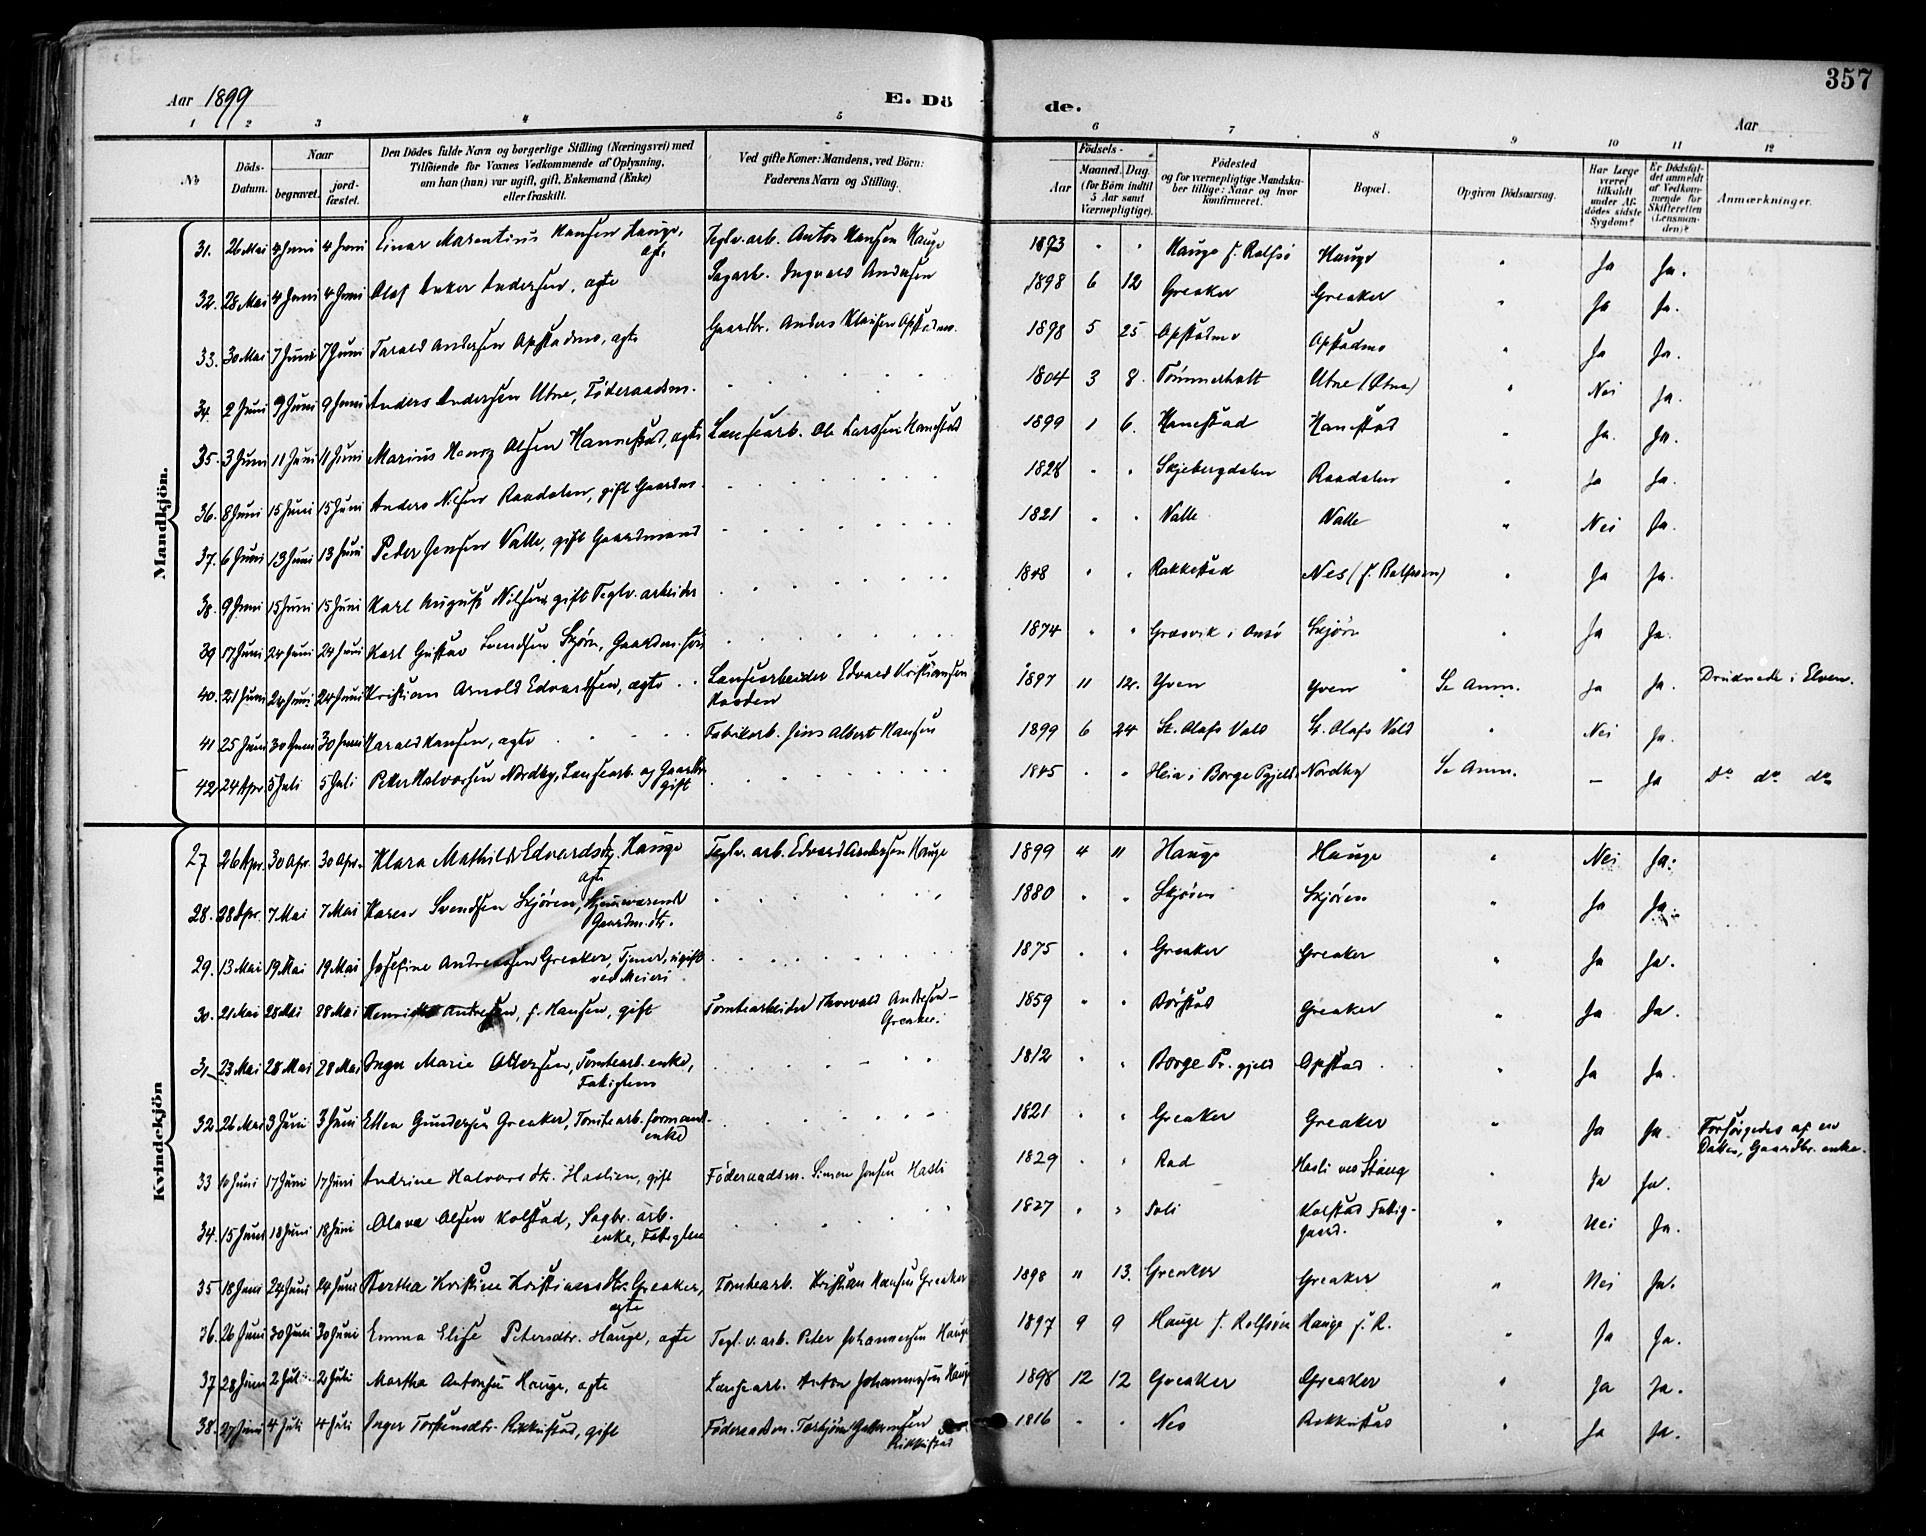 357
Aar 1899
E. Dö de.
Aar
1 2 3 4 5 6 7 8 9 10 11 12
No
Döds-Datum.
Naar
begravet.
jord-fæstet.
Den Dödes fulde Navn og borgerlige Stilling (Næringsvei) med
Tilföiende for Voxnes Vedkommende af Oplysning,
om han (hun) var ugift, gift, Enkemand (Enke)
eller fraskilt.
Ved gifte Koner: Mandens, ved Börn:
Faderens Navn og Stilling.
Födsels-
Aar
Maaned. Dag.
(for Börn indtil
5 Aar samt
Værnepligtige).
Födested
og for værnepligtige Mandska-
ber tillige: Naar og hvor
konfirmeret.
Bopæl.
Opgiven Dödsaarsag.
Har Læge
været
tilkaldt
under Af-
dödes sidste
Sygdom?
Er Dödsfal-
det anmeldt
af Vedkom-
mende for
Skifteretten
(Lensman-
den)?
Anmærkninger.
Mandkjön.
31. 26 Mai 4 Juni 4 Juni Einar Marentius Hansen Hauge, ægte Teglv. arb. Anton Hansen Hauge 1893 " " Hauge f. Rolfsö Hauge " Ja Ja.
32. 28 Mai 4 Juni 4 Juni Olaf Anker Andersen, ægte Sagarb. Ingvald Andersen 1898 6 12 Greaker Greaker " Ja Ja.
33. 30 Mai 7 Juni 7 Juni Tarald Andersen Opstadmo, ægte Gaardbr. Anders Klausen Opstadmo. 1898 5 25 Opstadmo Opstadmo " Ja Ja.
34. 2 Juni 9 Juni 9 Juni Anders Andersen Utne, Föderaadsm. 1804 3 8. Tömmerholt Utne (Utne) " Nei Ja.
35. 3 Juni 11 Juni 11 Juni Marius Henry Olsen Hannestad, ægte Landsearb. Ole Larssen Hanestad 1899 1 6. Hanestad Hanestad " Ja. Ja.
36. 8 Juni 15 Juni 15 Juni Anders Nilsen Raadalen, gift Gaardm. 1828 " " Skjebergdalen Raadalen " Ja Ja.
37. 6 Juni 13 Juni 13 Juni Peder Jensen Valle, gift Gaardmand 1821 " " Valle Valle " Nei Ja.
38. 9 Juni 15 Juni 15 Juni Karl August Nilsen, gift Teglv. arbeider 1848 " " Rakkestad Nes (f. Rolfsøen) " Ja Ja.
39 17 Juni 24 Juni 24 Juni Karl Gustav Svendsen Skjörn, Gaardm. sön 1874 " " Græsvik i Onsö Skjörn " Ja Ja.
40. 21 Juni 24 Juni 24 Juni Kristian Arnold Edvardsen, ægte Landsearbeider Edvard Kristiansen 1897 11 12. Yven Yven Se Anm. Ja Ja. Druknede i Elven.
41 25 Juni 30 Juni 30 Juni Harald Hansen, ægte Fabrikarb. Jens Albert Hansen 1899 6 24 St. Olafs Vold St. Olafs Vold " Nei Ja.
42 24 Apr. 5 Juli 5 Juli Peter Halvorsen Nordby, Landsearb. og Gaardbr. gift 1845 " " Heia i Borge Pgjeld Nordby Se Anm. — Ja Do do do
Kvindekjön
27 26 Apr. 30 Apr. 30 Apr. Klara Mathilde Edvardsdtr. Hauge ægte Teglv. arb. Edvard Andersen Hauge 1899 4 11 Hauge Hauge " Nei Ja.
28. 28 Apr. 7 Mai 7 Mai Karen Svendsen Skjören, Hjemmeværende Gaardm. dtr. 1880 " " Skjören Skjören " Ja Ja.
29. 13 Mai 19 Mai 19 Mai Josefine Andreassen Greaker, Tjener, ugift ved Meieri 1875 " " Greaker Greaker " Ja Ja.
30. 21 Mai 28 Mai 28 Mai Henriette Andresen, f. Hansen, gift Tomtearbeider Thorvald Andresen - Greaker. 1859 " " Börstad Greaker " Ja Ja.
31 23 Mai 28 Mai 28 Mai Inger Marie Ottersen, Tomtearb. enke, Fatiglem 1812 " " Borge Pr. gjeld Opstad " Ja Ja.
32. 26 Mai 3 Juni 3 Juni Ellen Gundersen Greaker, Tomtearb. formands enke 1821 " " Greaker Greaker " Ja Ja. Forsörgedes af en Datter, Gaardbr. enke.
33 10 Juni 17 Juni 17 Juni Andrine Halvorsdtr. Haslien, gift Föderaadsm. Simon Jensen Hasli 1829 " " Rad Hasli ved Stang " Ja Ja.
34. 15 Juni 18 Juni 18 Juni Olava Olsen Kolstad, Sagbr. arb. enke, Fatiglem 1827 " " Soli Kolstad Fatig-gaard. " Nei Ja.
35 18 Juni 24 Juni 24 Juni Bertha Kristine Kristiansdtr. Greaker, ægte Tomtearb. Kristian Hansen Greaker 1898 11 13. Greaker Greaker " Nei Ja.
36. 26 Juni 30 Juni 30 Juni Emma Elise Petersdtr. Hauge, ægte Tegl. v. arb. Peter Johannesen Hauge 1897 9 9 Hauge f. Rolfsöen Hauge f. R. " Ja Ja.
37 28 Juni 2 Juli 2 Juli Martha Antonsen Hauge, ægte Landsearb. Anton Johannesen Hauge 1898 12 12 Greaker Greaker " Ja Ja.
38. 27 Juni 4 Juli 4 Juli Inger Torstensdtr. Rokkestad, gift Föderaadsm. Torbjörn 1816 " " Nes Rokkestad Ja Ja.